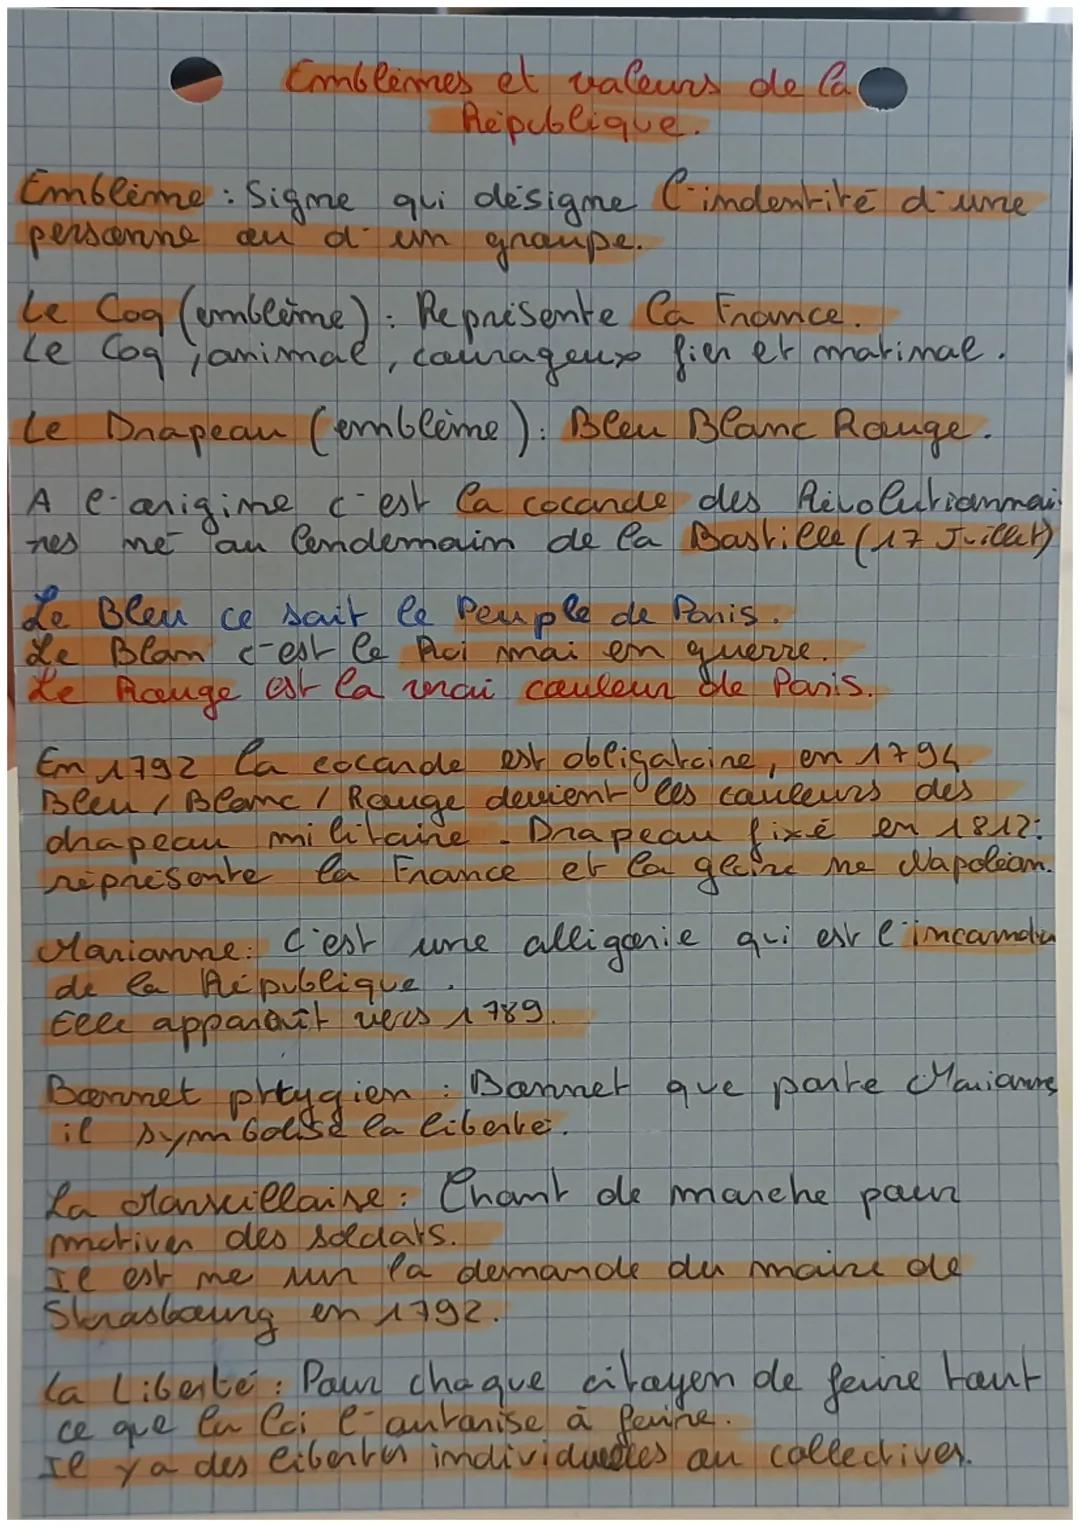 Emblèmes et valeurs de la
République.
Emblème : Signe qui désigne l'indentité d'une
personne ou d'un groupe.
Le Coq (emblème) : Représente la France.
Le Coq, animal, courageux fier et matinal.
Le Drapeau (emblème) : Bleu Blanc Rouge.
A l'origine c'est la cocarde des Révolutionnai
res né au lendemain de la Bastille (17 Juillet)
Le Bleu ce sait le Peuple de Paris.
Le Blan c'est le Roi mai en guerre.
Le Rouge est la vrai couleur de Paris.
En 1792 la cocarde est obligatoire, en 1794
Bleu / Blanc / Rouge devient les couleurs des
drapeau militaire. Drapeau fixé en 1812:
répresente la France et la gloire ne Napoléon.
Marianne: C'est une alligorie qui est l'
de la République.
Elle apparaît vers 1789.
Bonnet prhygien : Bonnet que porte Marianne,
il symbolise la liberté.
La Marseillaise : Chant de marche pour
motiver des soldats.
Il est né sur la demande du maire de
Strasbourg en 1792.
La Liberté : Pour chaque citoyen de faire tout
ce que la loi l'autorise à faire.
Il y a des libertés individuelles ou collectives.